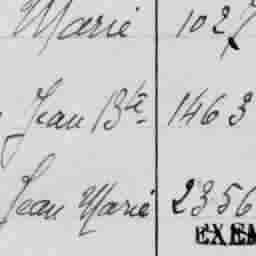 Marie 1027
Jean Bte 1463
Jean Marie 2356
EXEM